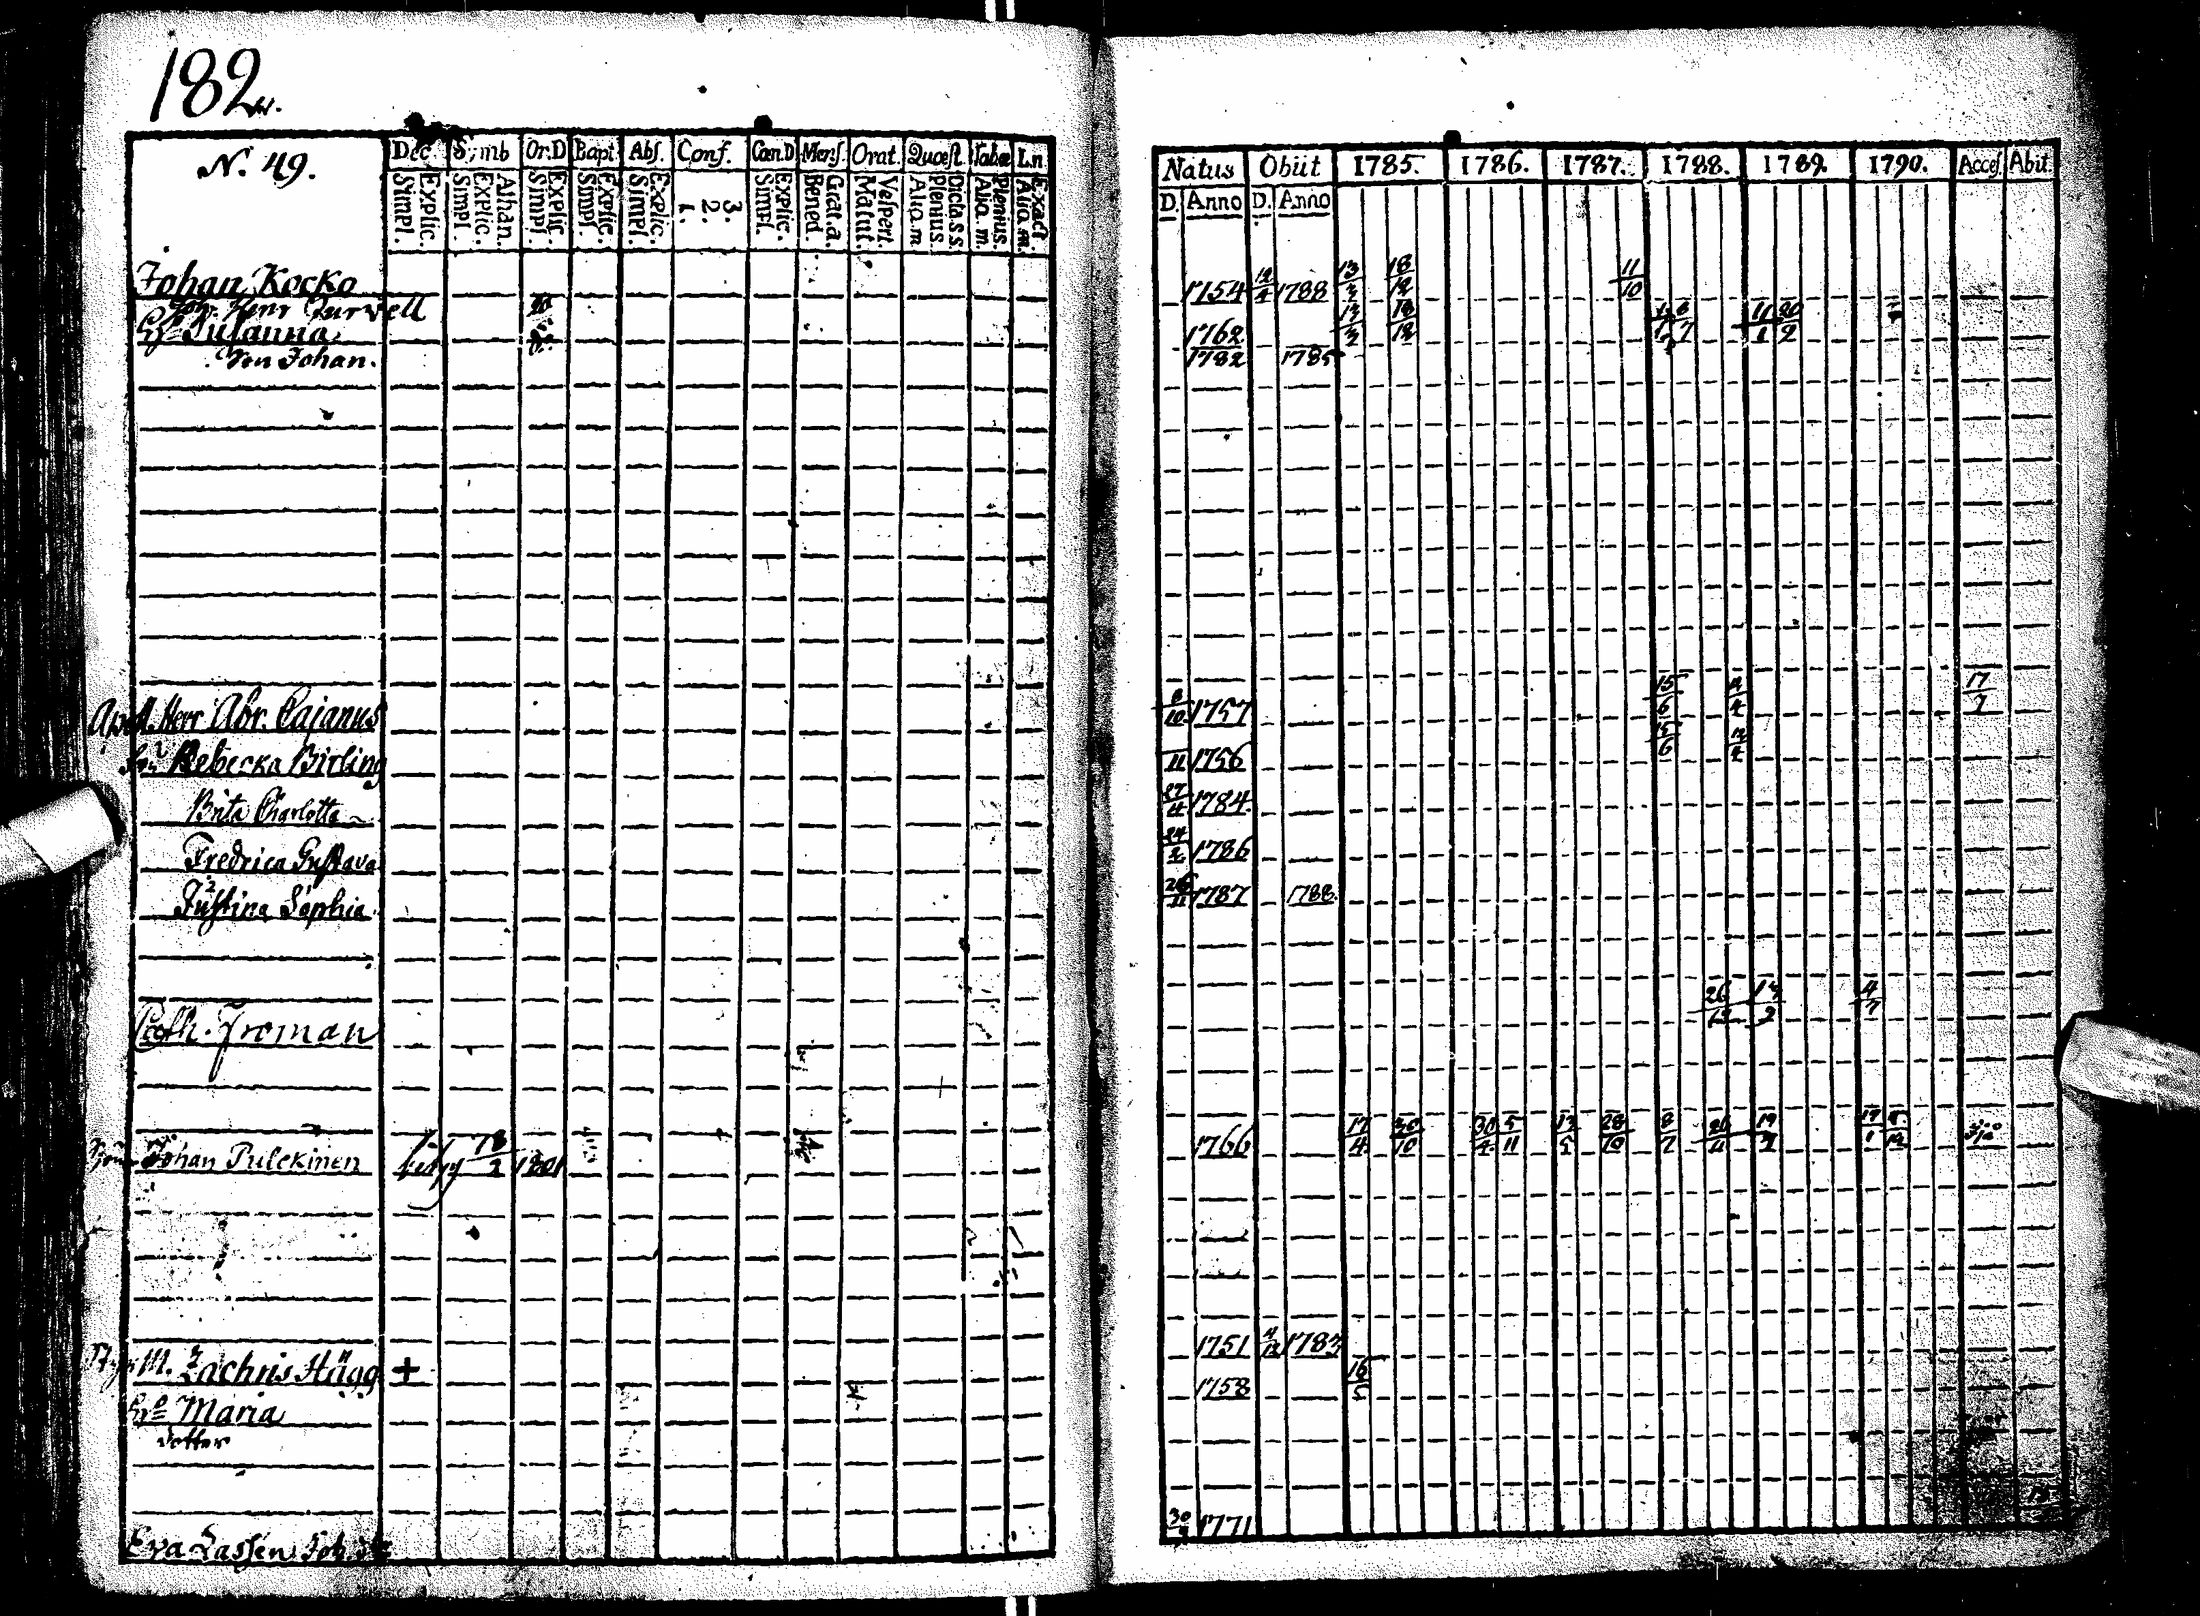 182
N. 49.
Dec. Symb Or.D Bapt Abs. Conf. Cœn.D Mens. Orat. Quæst. Tabæ L.n.
Explic. Simpl. Athan. Explic. Simpl. Explic. Simpl. Explic. Simpl. Explic. Simpl. 3. 2. 1. Explic. Simpl. Grat.a. Bened. Vespert. Matut. Dicta s.s. Plenius. Alia.m Plenius. Alia.m. Exact. Alia.m.
Johan Kocko
Joh. Henr
Hu Susanna
Son Johan.
Herr Abr. Cajanus
Hu Rebecka Birling
Brita Charlotta
Fredrica Gustava
Justina Sophia
Cath. Froman
Johan Pulckinen 18/2 1801
M. Zachris Hägg +
Hu Maria
dotter
Eva Lassen Joh.
Natus Obiit 1785. 1786. 1787. 1788. 1789. 1790. Acces. Abit.
D. Anno D. Anno
1754 12/4 1788 13/3 18/12 11/10
1762 13/3 18/12
1782 1785
8/10 1757 15/6 17/2
11 1756 15/6
27/4 1784
24/2 1786
26/11 1787 1788
4/7
1766 17/4 30/10 30/4 5/11 28/10 8/7
1751 4/12 1783
1758 16/5
30/9 1771